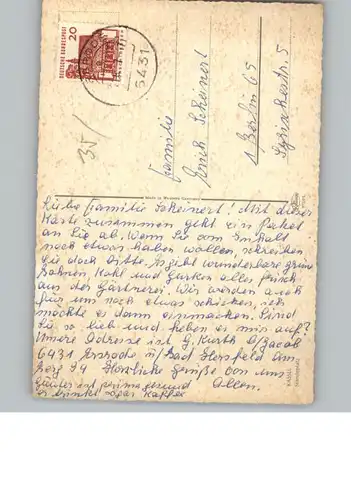 DEUTSCHE BUNDESPOST
20
5431
35/
Familie
Erich Scheinert
1 Berlin 65
5
Made in Western Germany
Liebe Familie Scheinert! Mit dieser
Karte zusammen geht ein Paket
an Sie ab. Wenn Sie vom Inhalt
noch etwas haben wollen, schreiben
Sie doch bitte. Es gibt wunderbare grüne
Bohnen, Kohl und Gurken alles frisch
aus der Gärtnerei. Wir werden auch
für uns noch etwas schicken, ich
möchte es dann einmachen. Sind
Sie so lieb und heben es mir auf?
Unsere Adresse ist G. Kurth b/Jacob
6431 ü/Bad Hersfeld Am
Berg 94 Herzliche Grüße von uns
Günter ist prima gesund Allen.
er trinkt sogar Kaffee